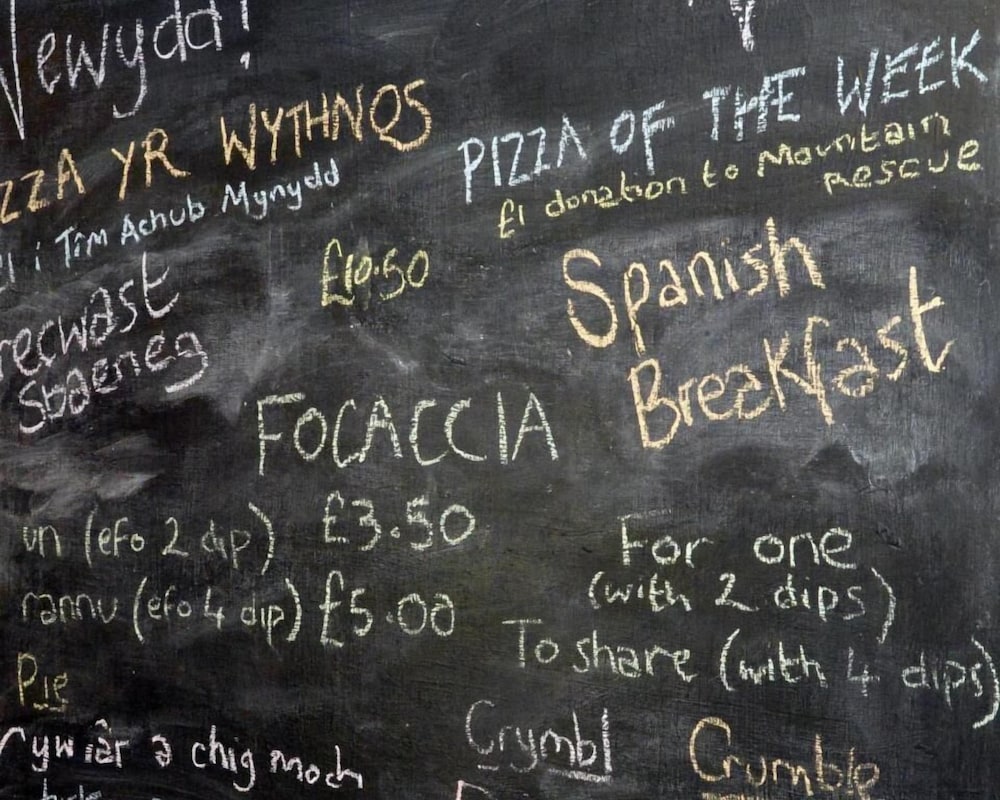 Newydd!
PIZZA OF THE WEEK
ZZA YR WYTHNOS
£1 donation to Mountain
RESCUE
£1 i Tîm Achub Mynydd
£10.50
Spanish
Breakfast
recwast
Sbaeneg
FOCACCIA
un (efo 2 dip) £3.50
For one
(with 2 dips)
rannu (efo 4 dip) £5.00
To share (with 4 dips)
Pie
cyw iâr a chig moch
Crymbl
Crumble